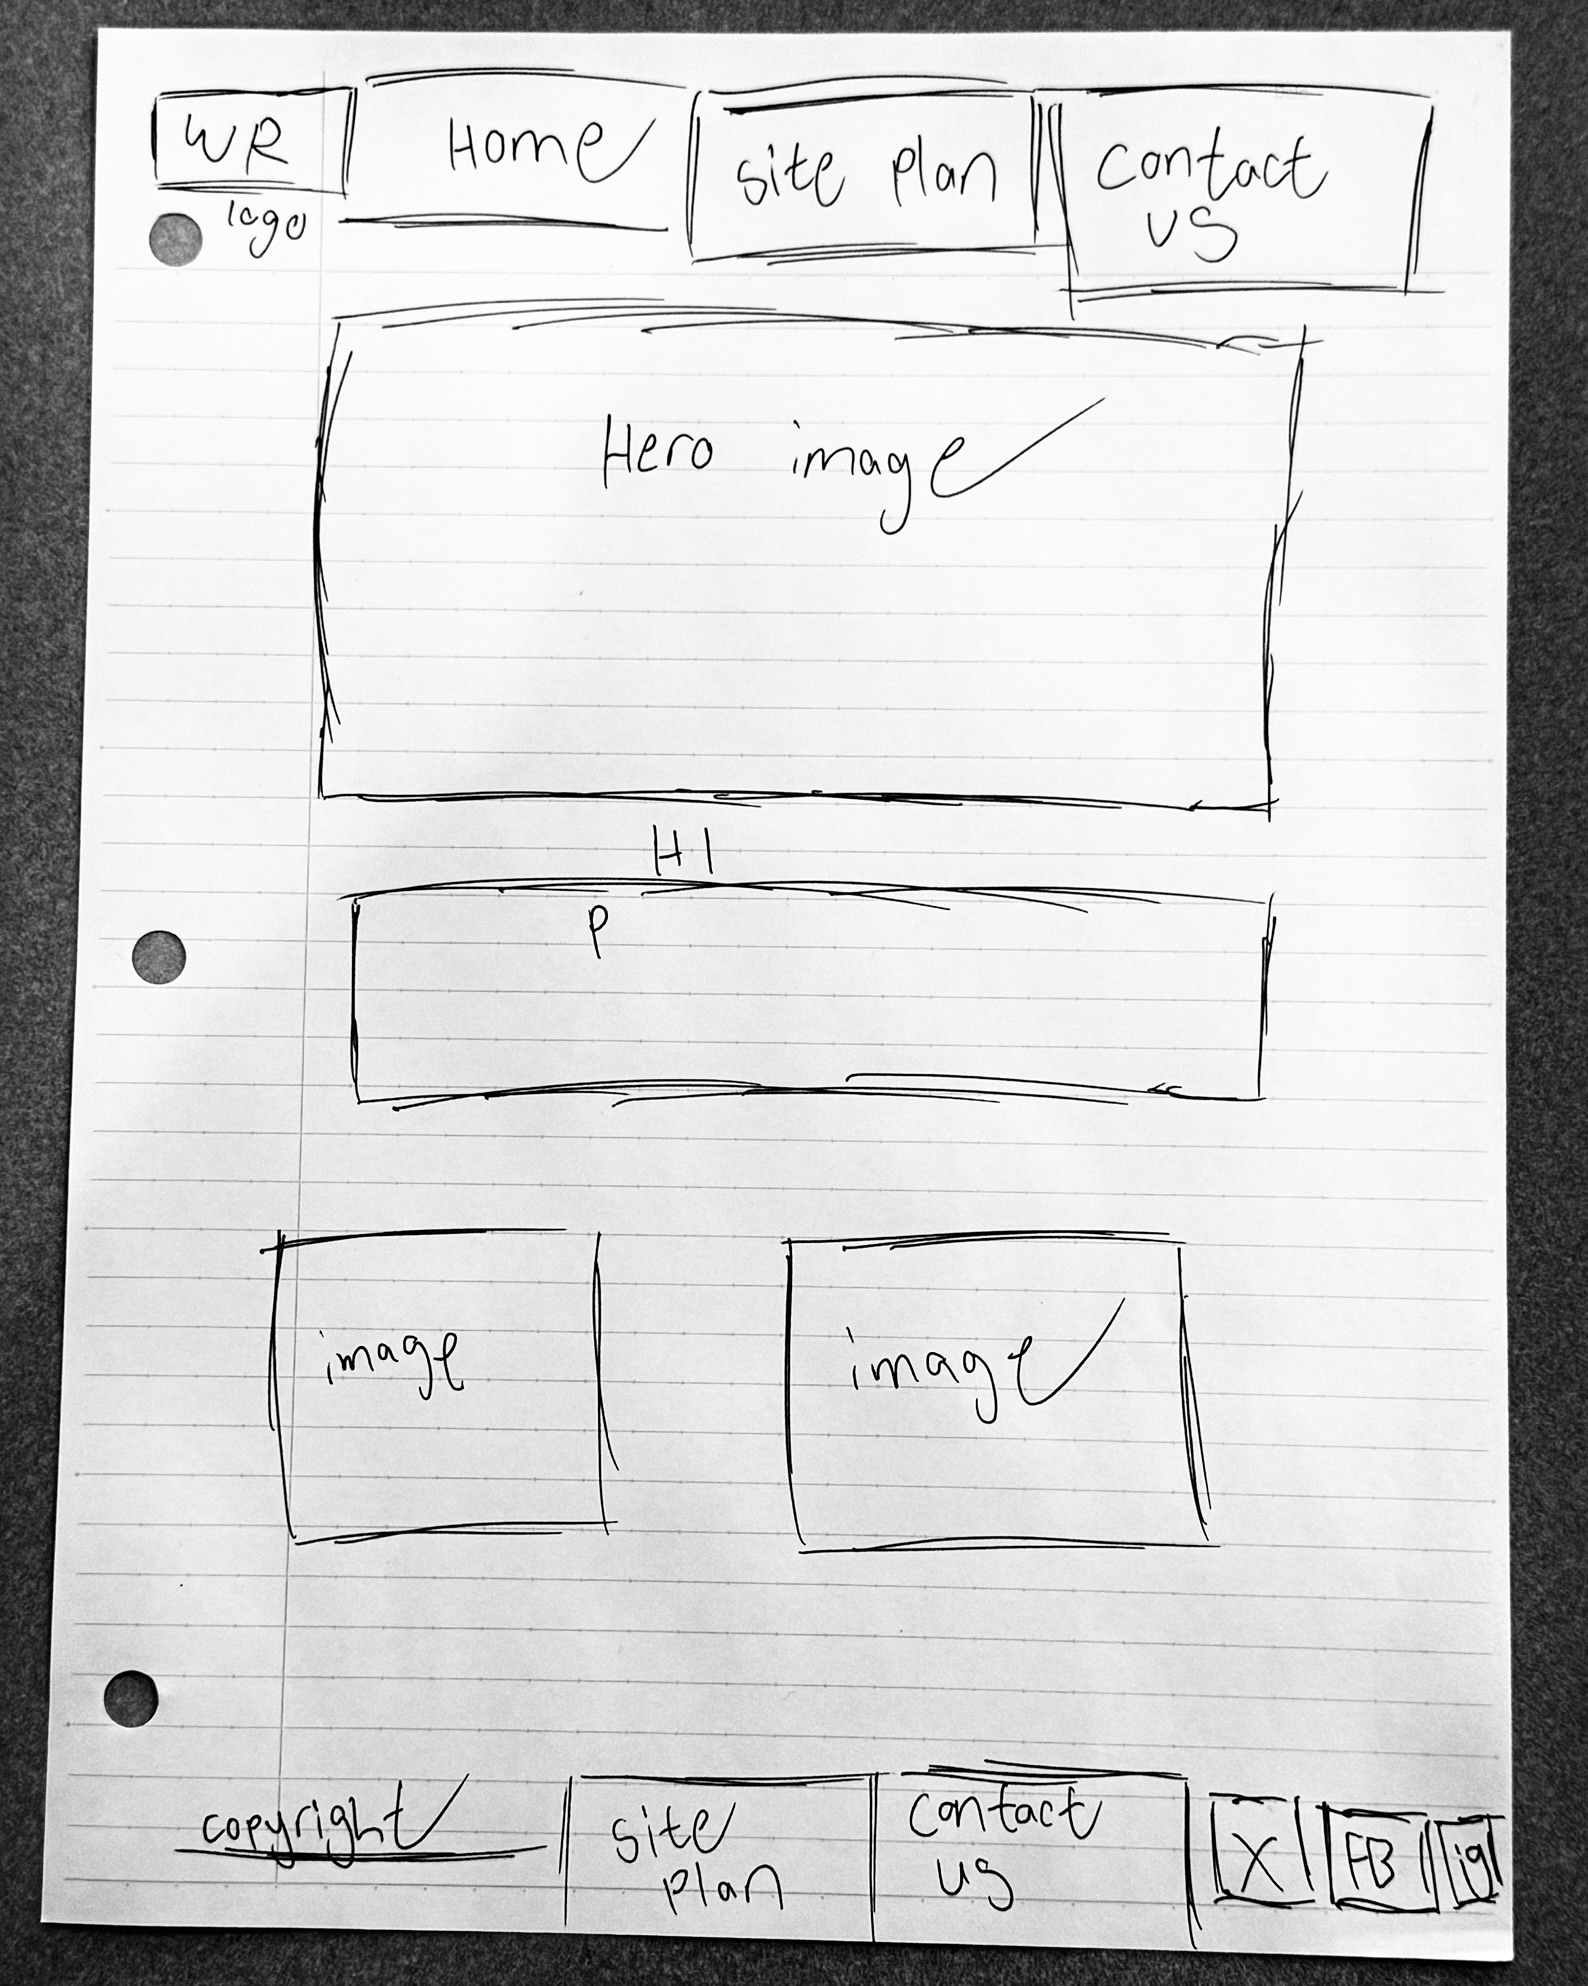 WR
logo
Home
site plan
contact
us
Hero image
H1
P
image
image
copyright
site
plan
contact
us
X
FB
ig